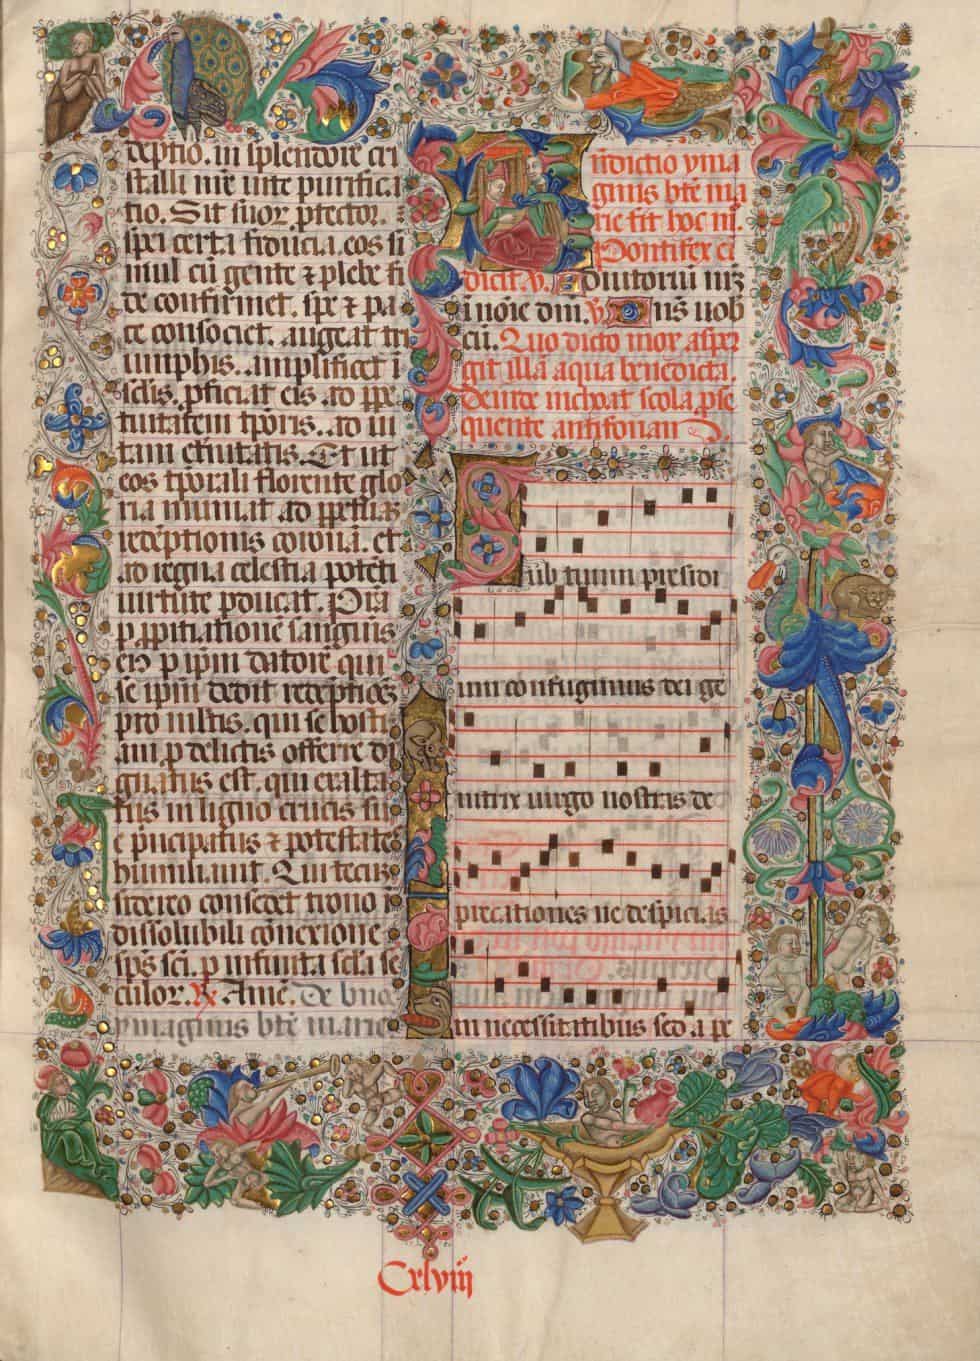 deptio. in splendore cri
stalli nr̄e uite purifica
tio. Sit suoꝝ ꝓtector.
spei certa fiducia. eos si
mul cū gente ⁊ plebe fi
de confirmet. spe ⁊ pa
ce consociet. augeat tri
umphis. amplificet i
sclis. ꝓficiat eis ad ꝑpe
tuitatem tp̄oris. ad ui
tam et̄nitatis. Et ut
eos tp̄orali florente glo
ria muniat ad ꝑpetuas
redēptionis coronā. et
ad regna celestia potēti
uirtute ꝑducat. Pia
ꝑ ꝓpitiationē sanguis
eiꝰ ꝑ ip̄m datorē qui
se ip̄m dedit redēptiōēꝫ
pro mltis. qui se hosti
am ꝓ delictis offerre di
gnatus est. qui exalta
tus in ligno crucis su
e prīcipatus ⁊ potestates
humiliauit. Qui tecuꝫ
sidereo consedet trono ī
dissolubili cōnexione
sp̄s sc̄i. ꝑ infinita scl̄a se
culoꝝ. ℟. Amē. De bn̄e.
ymaginis btē marie
Bn̄dictio yma
ginis btē ma
rie fit hoc m̄.
Pontifex ei
dicit. ℣. Adiutoriū nr̄ꝫ
ī noīe dn̄i. ℣. Dn̄s uob
cū. Quo dicto mox asper
git illā aqua benedicta.
Deinde inchoat scola ꝓse
quente antifonam
Sub tuum presidi
um confugimus dei ge
nitrix uirgo nostras de
precationes ne despicias
in necessitatibus sed a pe
Cxlviij